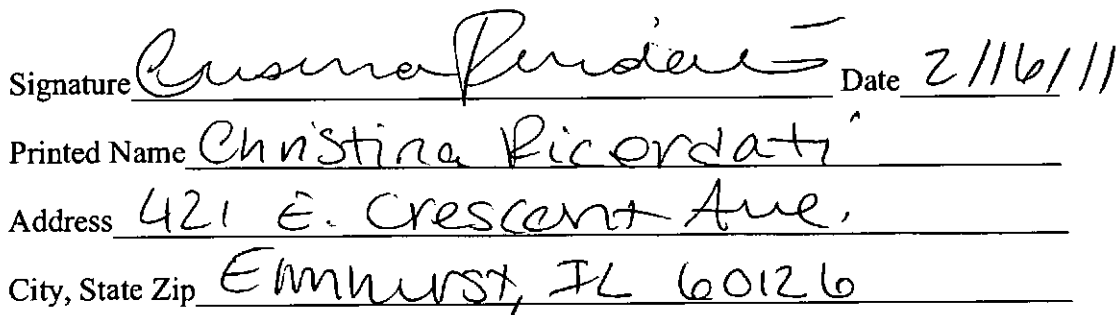 Signature Date 2/16/11
Printed Name Christina Ricordati
Address 421 E. Crescent Ave.
City, State Zip Elmhurst, IL 60126